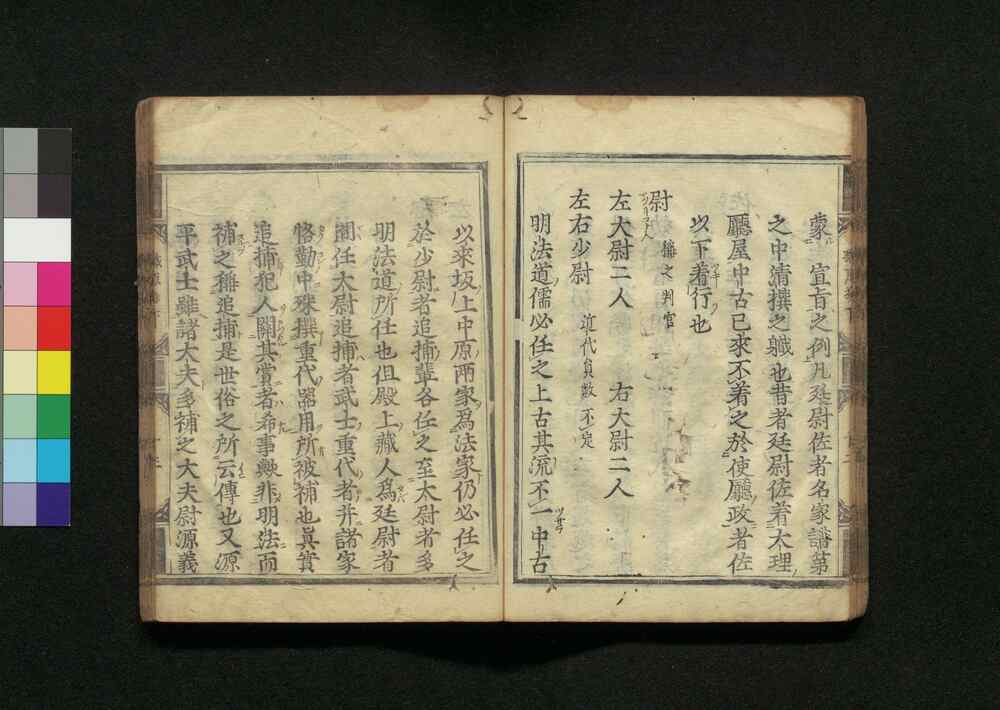 蒙 宣旨之例凡廷尉佐者名家譜第
之中清撰之軄也昔者廷尉佐着大理
廳屋中古已来不着之於使廳政者佐
以下着行也
尉 稱之判官
左大尉二人 右大尉二人
左右少尉 近代員数不定
明法道儒必任之上古其流不一中古
以来坂上中原兩家爲法家仍必任之
於少尉者追捕輩各任之至大尉者多
明法道所任也但殿上藏人爲廷尉者
間任大尉追捕者武士重代者并諸家
恪勤中殊撰重代器用所被補也眞賞
追捕犯人關其賞者希事歟非明法而
補之稱追捕是世俗之所云傳也又源
平武士雖諸大夫多補之大夫尉源義